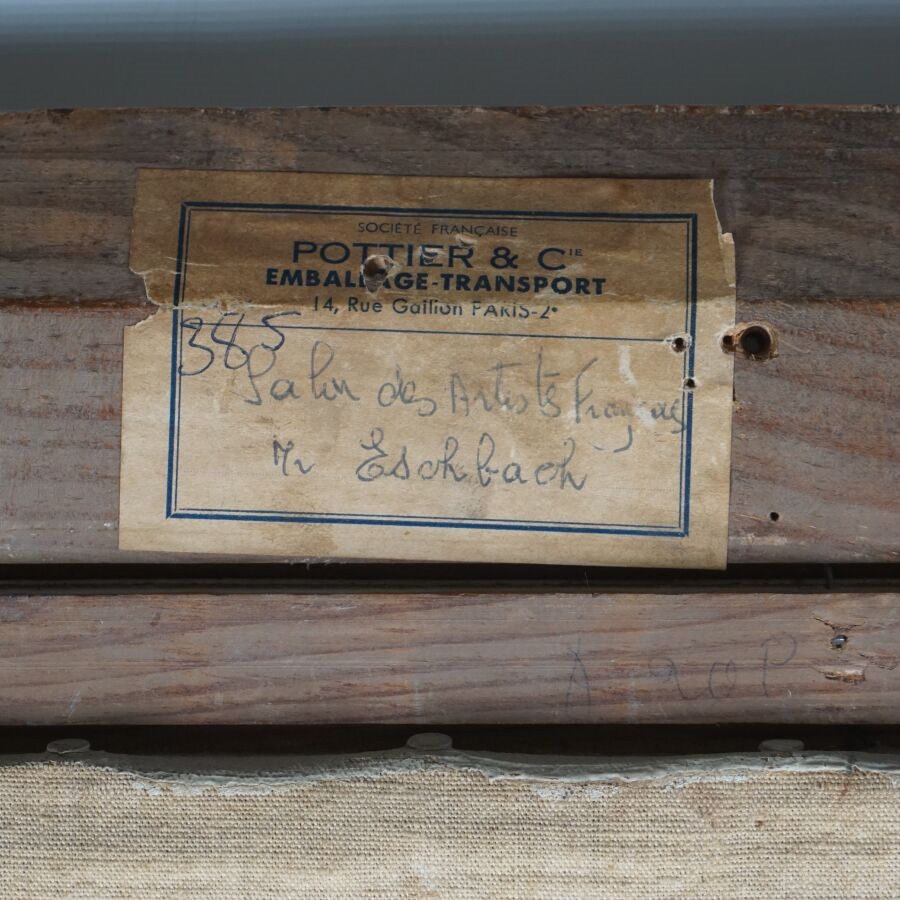 SOCIÉTÉ FRANÇAISE
POTTIER & CIE
EMBALLAGE-TRANSPORT
14, Rue Gaillon PARIS-2e
385
Salon des Artistes Français
Mr Eschbach
A 20P